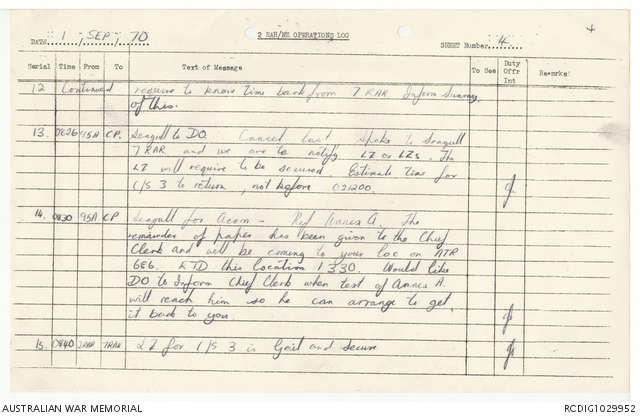 2 RAR/NZ OPERATIONS LOG
4
DATE 1 , SEP , 70
SHEET Number 4.
Serial Time From To Text of Message To See Duty Offr Int Remarks
12 Continued require to know time back from 7 RAR Inform Sunray
of this.
13. 0826 95A CP. Seagull to DO. Cancel last spoke to Seagull
7 RAR and we are to notify LZ or LZs. The
LZ will require to be secured. Estimate time for
C/S 3 to return, not before 021200.
14. 0830 95A CP Seagull for Acorn - Ref Annex A. The
remainder of paper has been given to the Chief
Clerk and will be coming to your loc on ATR
6E6. ETD this location 1330. Would like
DO to inform Chief Clerk when rest of Annex A.
will reach him so he can arrange to get
it back to you.
15. 0840 2RAR 7RAR LZ for C/S 3 is and secure
AUSTRALIAN WAR MEMORIAL
RCDIG1029952